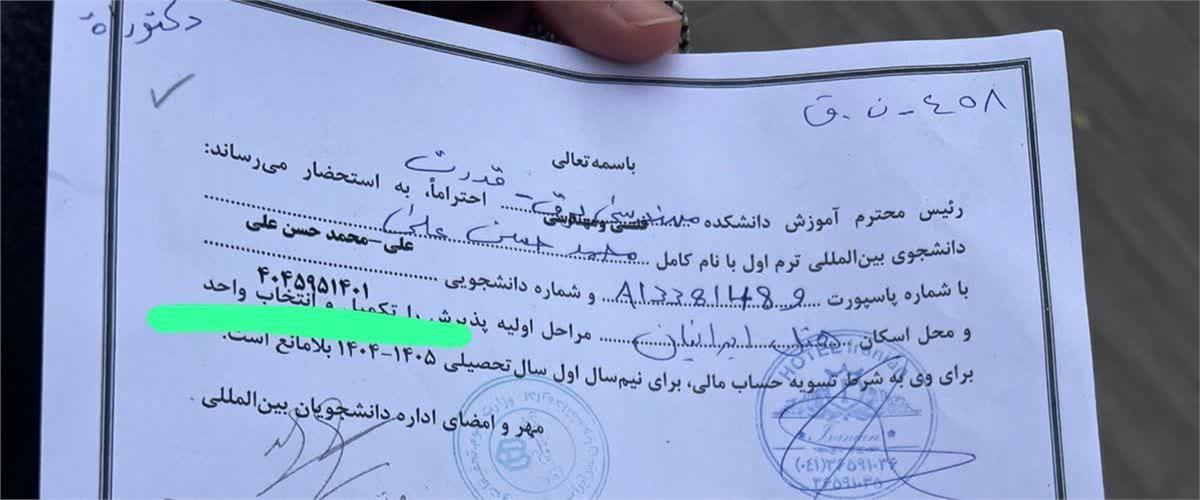 دکتورا
۴۵۸ - ن.ق
باسمه تعالی
رئیس محترم آموزش دانشکده مهندسی برق - قدرت احتراماً، به استحضار می‌رساند:
فنی و مهندسی
دانشجوی بین‌المللی ترم اول با نام کامل محمد حسن علی
علی-محمد حسن علی
با شماره پاسپورت و A1338148 و شماره دانشجویی ۴۰۴۵۹۵۱۴۰۱
و محل اسکان هتل ایرانیان مراحل اولیه پذیرش را تکمیل و انتخاب واحد
برای وی به شرط تسویه حساب مالی، برای نیم‌سال اول سال تحصیلی ۱۴۰۵-۱۴۰۴ بلامانع است.
مهر و امضای اداره دانشجویان بین‌المللی
HOTEL Iranian
Iranian
(۰۴۱)۳۶۵۹۱۰۳۶
۳۶۵۹۱۰۳۵